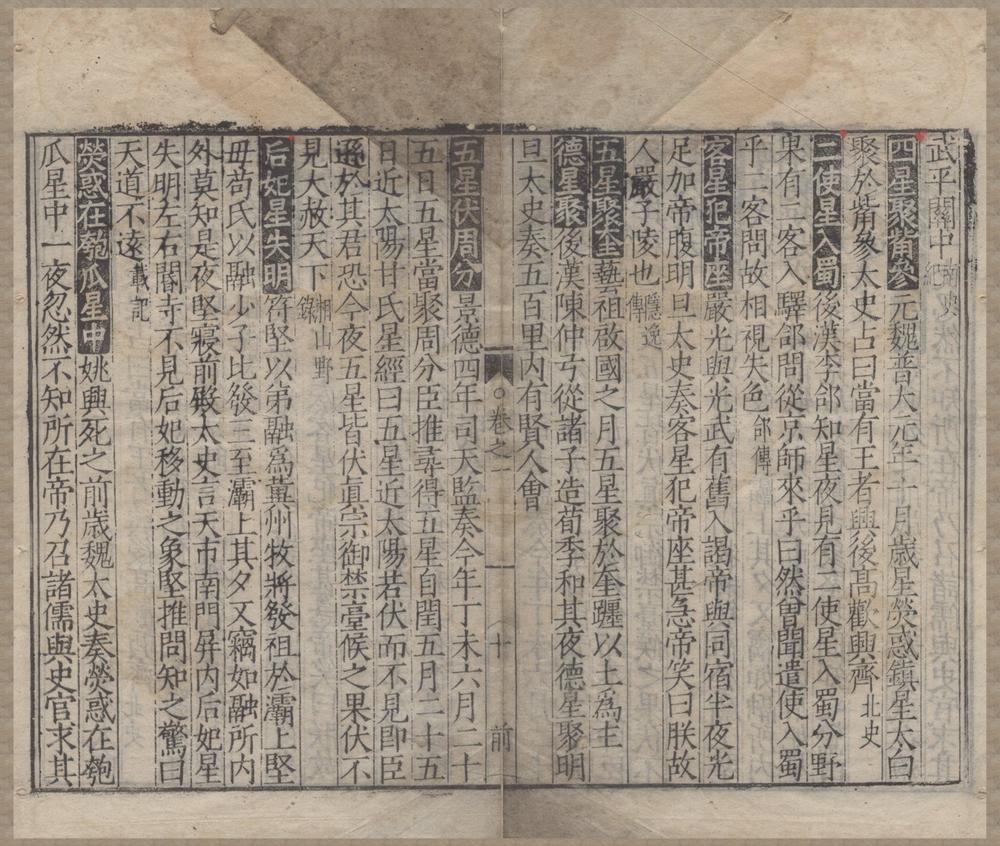 武平關中南史紀
四星聚觜參元魏普大元年十月歲星熒惑鎮星太白
聚於觜參太史占曰當有王者興後高歡興齊北史
二使星入蜀後漢李郃知星夜見有二使星入蜀分野
果有二客入驛郃問從京師來乎曰然曾聞遣使入蜀
乎二客問故相視失色郃傳
客星犯帝座嚴光與光武有舊入謁帝與同宿半夜光
足加帝腹明旦太史奏客星犯帝座甚急帝笑曰朕故
人嚴子陵也隱逸傳
五星聚奎藝祖啟國之月五星聚於奎躔以土為主
德星聚後漢陳仲弓從諸子造荀季和其夜德星聚明
旦太史奏五百里內有賢人會
卷之一 十 前
五星伏周分景德四年司天監奏今年丁未六月二十
五日五星當聚周分臣推尋得五星自閏五月二十五
日近太陽甘氏星經曰五星近太陽若伏而不見即臣
遜於其君恐今夜五星皆伏真宗御禁臺候之果伏不
見大赦天下湘山野錄
后妃星失明符堅以弟融為冀州牧將發祖於灞上堅
毋苟氏以融少子比發三至灞上其夕又竊如融所內
外莫知是夜堅寢前殿太史言天市南門屏內后妃星
失明左右閽寺不見后妃移動之象堅推問知之驚曰
天道不遠載記
熒惑在匏瓜星中姚興死之前歲魏太史奏熒惑在匏
瓜星中一夜忽然不知所在帝乃召諸儒與史官求其